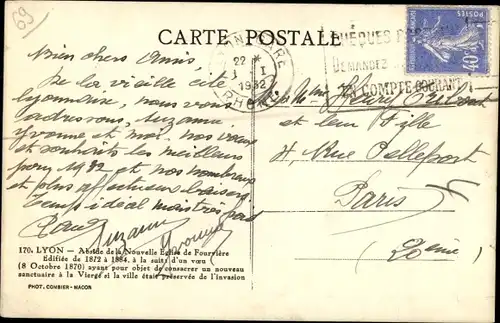 69
CARTE POSTALE
LYON GARE
22
1 I
1932
RHONE
CHÈQUES P
DEMANDEZ
UN COMPTE COURANT
POSTES
40c
Bien chers Amis,
De la vieille cité
lyonnaise, nous vous
adressons, Suzanne
Yvonne et moi nos vœux
et souhaits les meilleurs
pour 1932 et nos nombreux
et plus affectueux baisers
Temps idéal mais très froid
Suzanne
Yvonne
Henry
et leur Fille
4 Rue Pelleport
Paris
170. LYON — Abside de la Nouvelle Eglise de Fourvière
Edifiée de 1872 à 1884, à la suite d'un vœu
(8 Octobre 1870) ayant pour objet de consacrer un nouveau
sanctuaire à la Vierge si la ville était préservée de l'invasion
PHOT. COMBIER - MACON